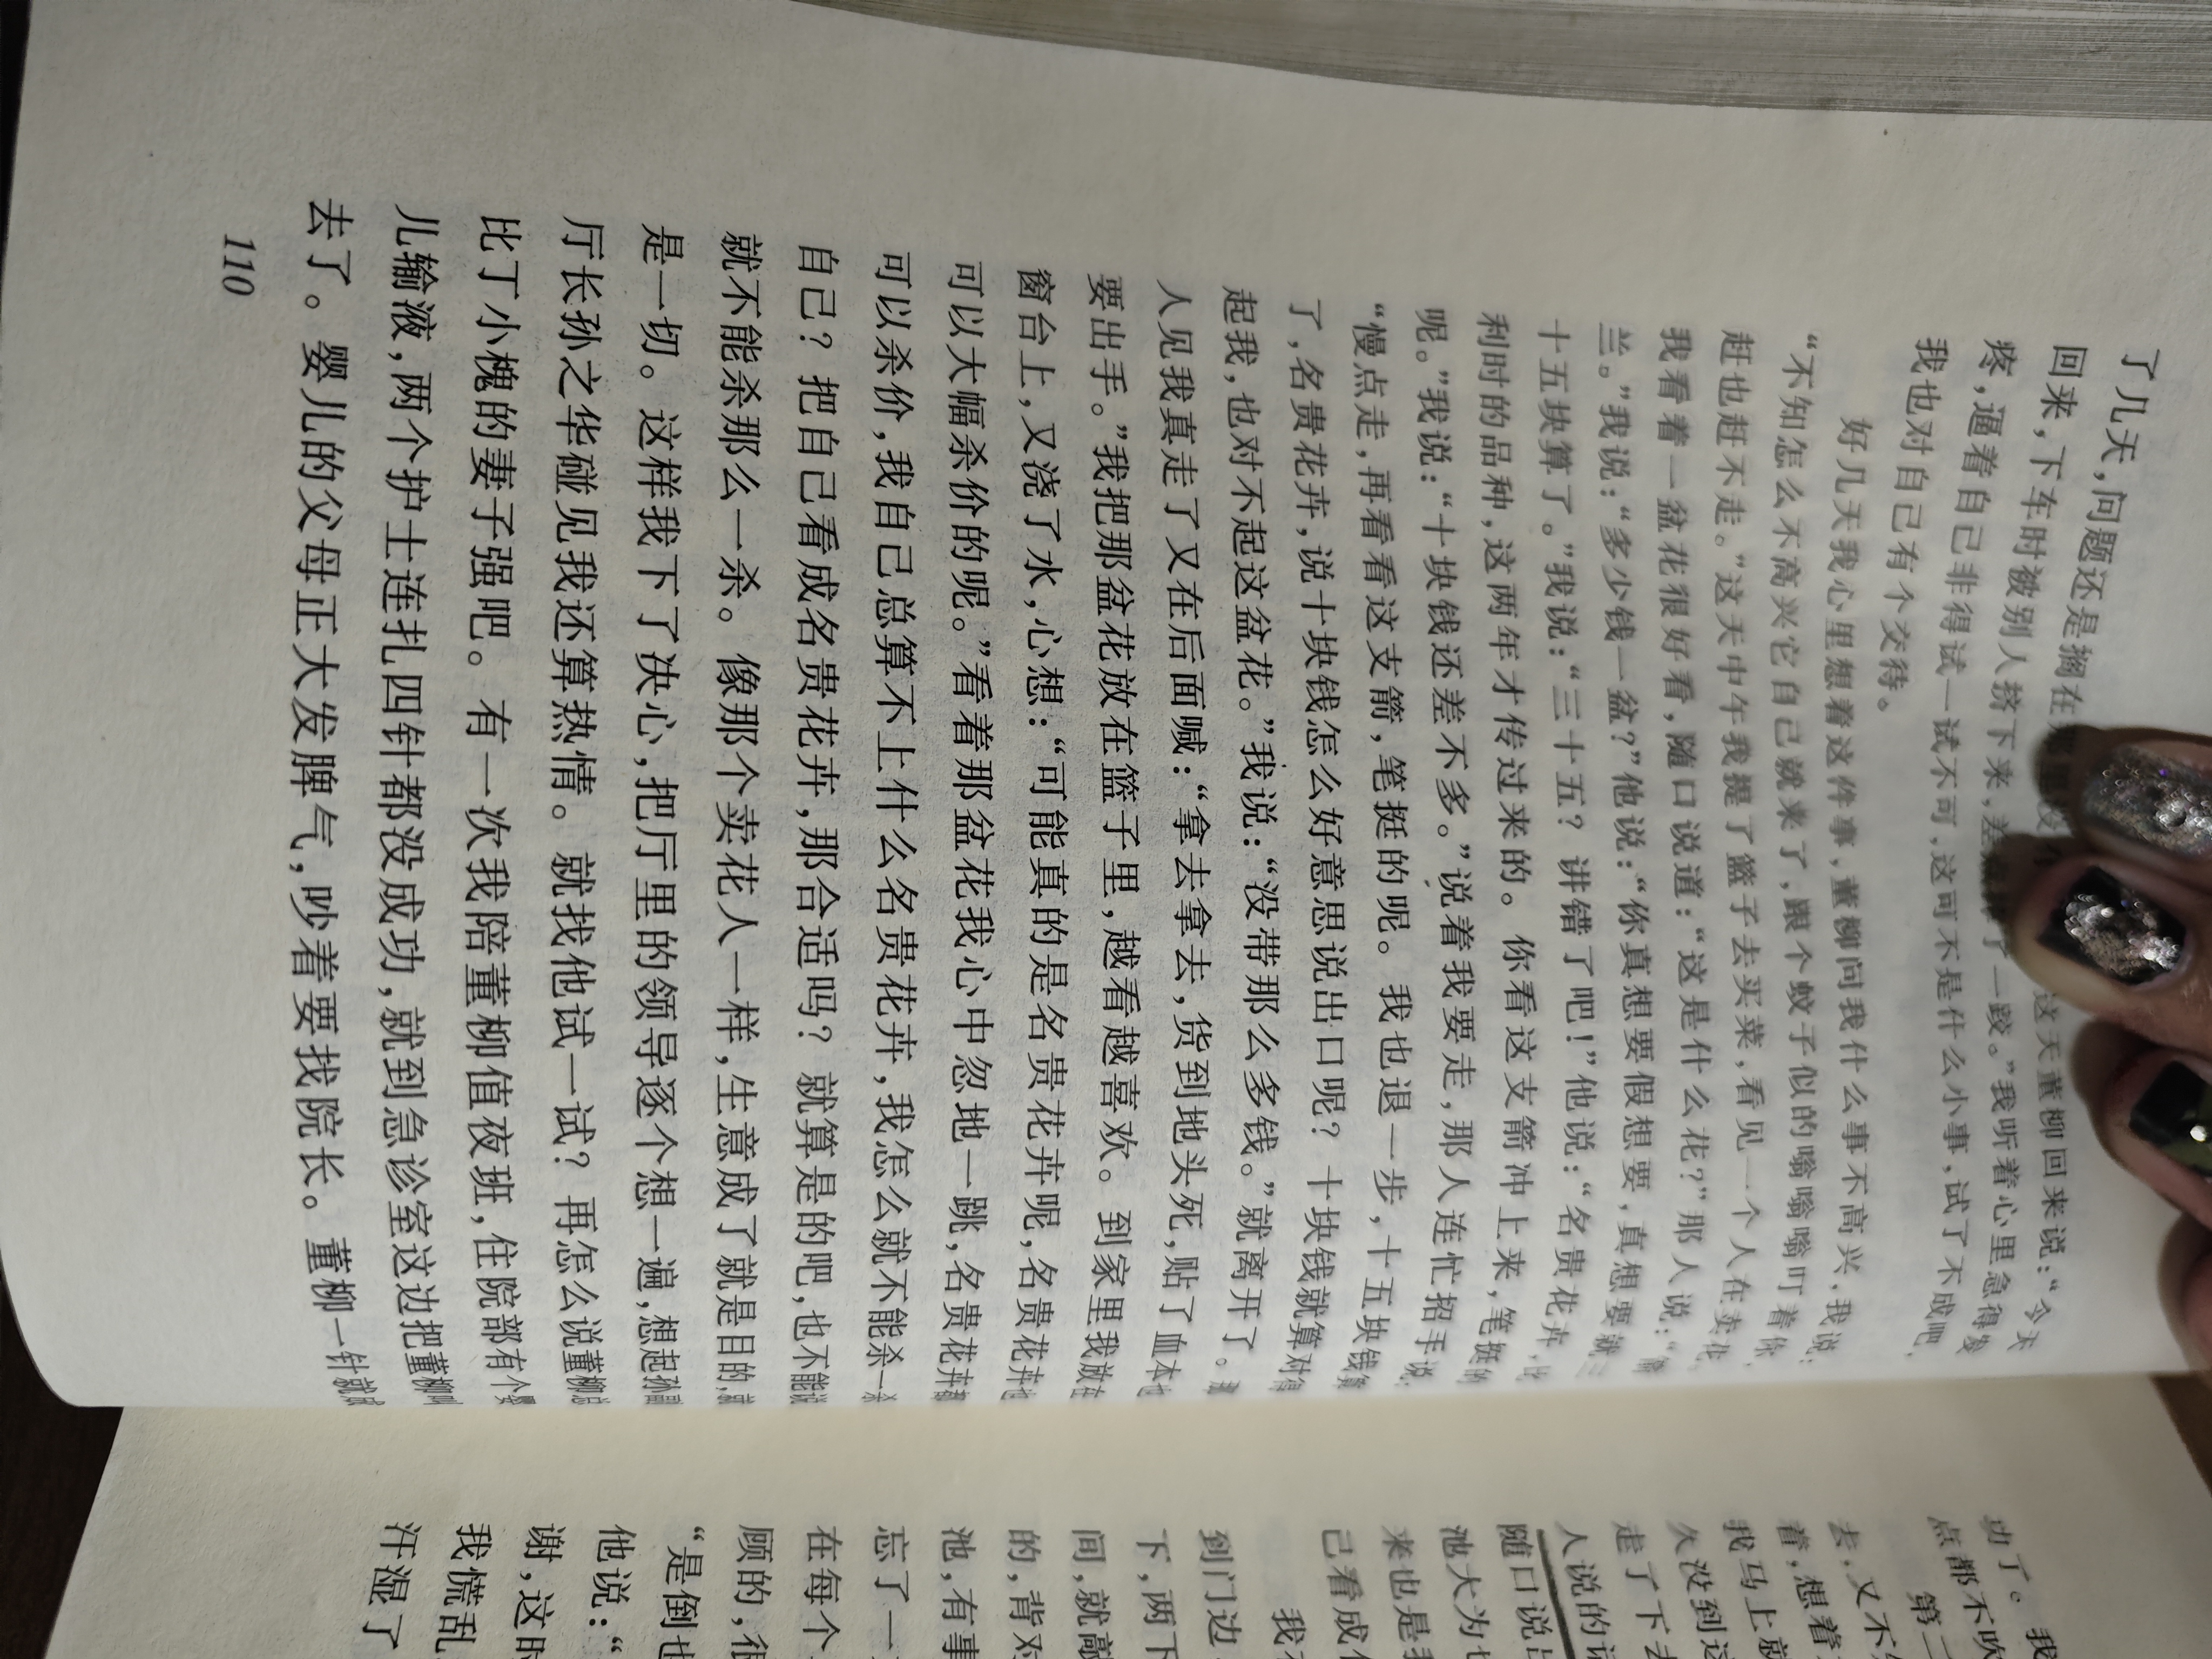 了几天,问题还是搁在 这天董柳回来说:“今天
回来,下车时被别人挤下来,差 了一跤。”我听着心里急得发
疼,逼着自己非得试一试不可,这可不是什么小事,试了不成吧,
我也对自己有个交待。
好几天我心里想着这件事,董柳问我什么事不高兴,我说:
“不知怎么不高兴它自己就来了,跟个蚊子似的嗡嗡嗡叮着你,
赶也赶不走。”这天中午我提了篮子去买菜,看见一个人在卖花,
我看看着一盆花很好看,随口说道:“这是什么花?”那人说:“
兰。”我说:“多少钱一盆?”他说:“你真想要假想要,真想要就三
十五块算了。”我说:“三十五?讲错了吧!”他说:“名贵花卉,
利时的品种,这两年才传过来的。你看这支箭冲上来,笔挺的
呢。”我说:“十块钱还差不多。”说着我要走,那人连忙招手说:
“慢点走,再看看这支箭,笔挺的呢。我也退一步,十五块钱算
了,名贵花卉,说十块钱怎么好意思说出口呢?十块钱就算对得
起我,也对不起这盆花。”我说:“没带那么多钱。”就离开了。
人见我真走了又在后面喊:“拿去拿去,货到地头死,贴了血本也
要出手。”我把那盆花放在篮子里,越看越喜欢。到家里我放在
窗台上,又浇了水,心想:“可能真的是名贵花卉呢,名贵花卉也
可以大幅杀价的呢。”看着那盆花我心中忽地一跳,名贵花卉都
可以杀价,我自己总算不上什么名贵花卉,我怎么就不能杀一杀
自己?把自己看成名贵花卉,那合适吗?就算是的吧,也不能说
就不能杀那么一杀。像那个卖花人一样,生意成了就是目的,就
是一切。这样我下了决心,把厅里的领导逐个想一遍,想起孙副
厅长孙之华碰见我还算热情。就找他试一试?再怎么说董柳总
比丁小槐的妻子强吧。有一次我陪董柳值夜班,住院部有个婴
儿输液,两个护士连扎四针都没成功,就到急诊室这边把董柳叫
去了。婴儿的父母正大发脾气,吵着要找院长。董柳一针就成
110
功了。我
点都不吹
第二
去,又不
着,想着
我马上就
久没到这
走了下去
人说的话
随口说出
池大为也
来也是我
己看成什
我
到门边
下,两下
间,就敲
的,背对
池,有事
忘了一
在每个
顾的,很
“是倒也
他说:“
谢,这时
我慌乱
汗湿了